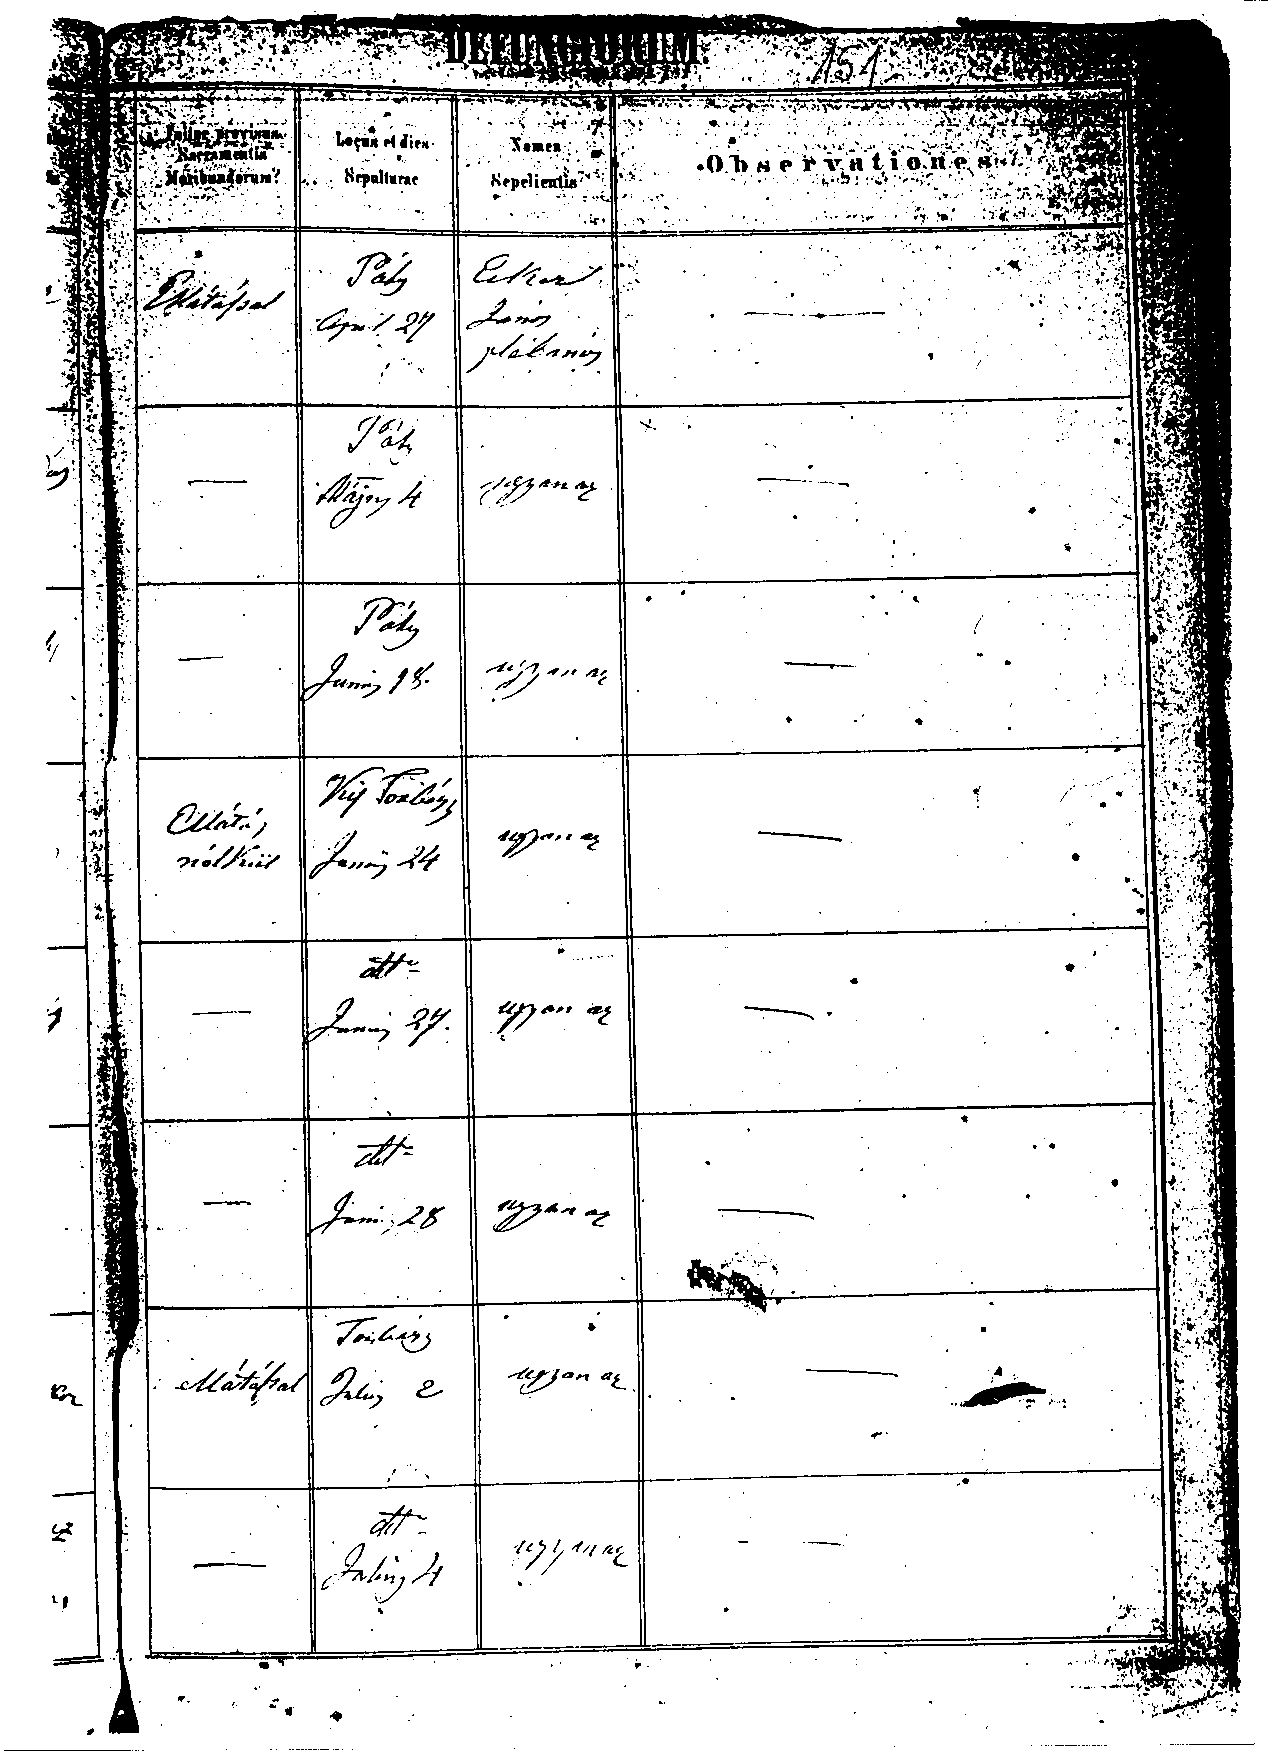 DEFUNCTORUM.
151
Fuitne provisus
Sacramentis
Moribundorum?
Locus et dies
Sepulturae
Nomen
Sepelientis
Observationes
Ellátással
Páty
April 27
János
plébános
—
Páty
Május 4
ugyan az
—
—
Páty
Junius 18.
ugyan az
—
Ellátás
nélkül
Kis Torbágy
Junius 24
ugyan az
—
—
dtt
Junius 27.
ugyan az
—
—
dtt
Juni, 28
ugyan az
—
ellátással
Torbágy
Julius 2
ugyan az
—
—
dtt
Julius 4
ugyan az
—